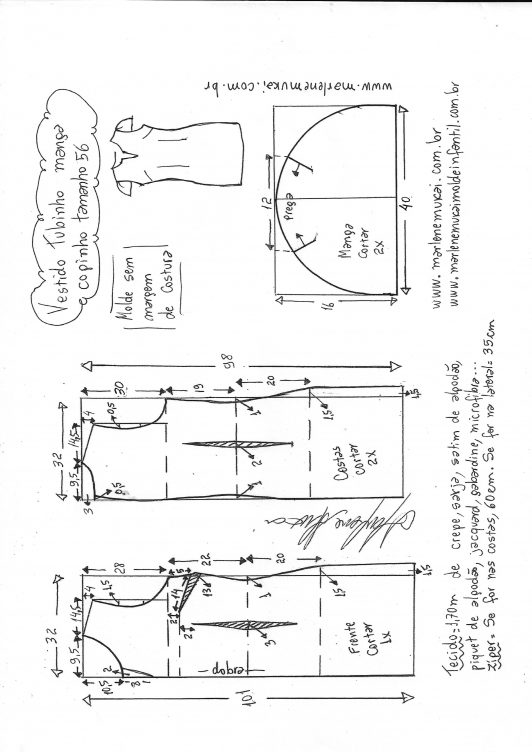 Vestido Tubinho manga
e copinho tamanho 56
Molde sem
margem
de Costura
www.marlenemukai.com.br
12
Prega
Manga
Cortar
2x
16
40
www.marlenemukai.com.br
www.marlenemukaimoldeinfantil.com.br
98
30
19
20
32
14,5
9,5
4
0,5
3
2
1,5
1,5
Costas
Cortar
2x
28
22
20
32
14,5
9,5
4
1,5
5
14
13
2
2
3
1,5
1,5
2
10,5
8
dobra
Frente
Cortar
1x
101
Tecido: 1,70m de crepe, sarja, satim de algodão,
piquet de algodão, jacquard, gabardine, microfibra...
Ziper: Se for nas costas, 60cm. Se for na lateral: 35cm